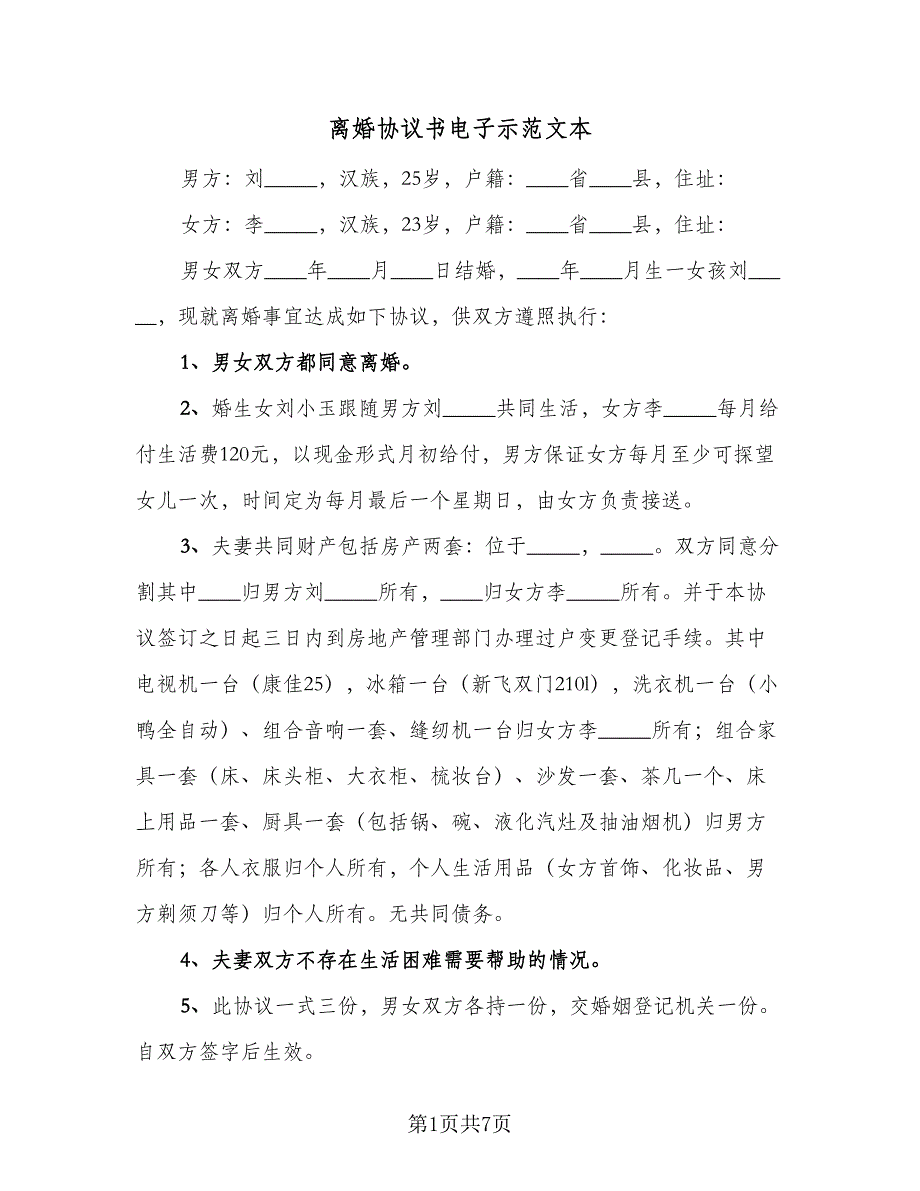 离婚协议书电子示范文本
男方：刘_____，汉族，25岁，户籍：____省____县，住址：
女方：李_____，汉族，23岁，户籍：____省____县，住址：
男女双方____年____月____日结婚，____年____月生一女孩刘___
__，现就离婚事宜达成如下协议，供双方遵照执行：
1、男女双方都同意离婚。
2、婚生女刘小玉跟随男方刘_____共同生活，女方李_____每月给
付生活费120元，以现金形式月初给付，男方保证女方每月至少可探望
女儿一次，时间定为每月最后一个星期日，由女方负责接送。
3、夫妻共同财产包括房产两套：位于_____，_____。双方同意分
割其中____归男方刘_____所有，____归女方李_____所有。并于本协
议签订之日起三日内到房地产管理部门办理过户变更登记手续。其中
电视机一台（康佳25），冰箱一台（新飞双门210l），洗衣机一台（小
鸭全自动）、组合音响一套、缝纫机一台归女方李_____所有；组合家
具一套（床、床头柜、大衣柜、梳妆台）、沙发一套、茶几一个、床
上用品一套、厨具一套（包括锅、碗、液化汽灶及抽油烟机）归男方
所有；各人衣服归个人所有，个人生活用品（女方首饰、化妆品、男
方剃须刀等）归个人所有。无共同债务。
4、夫妻双方不存在生活困难需要帮助的情况。
5、此协议一式三份，男女双方各持一份，交婚姻登记机关一份。
自双方签字后生效。
第1页共7页